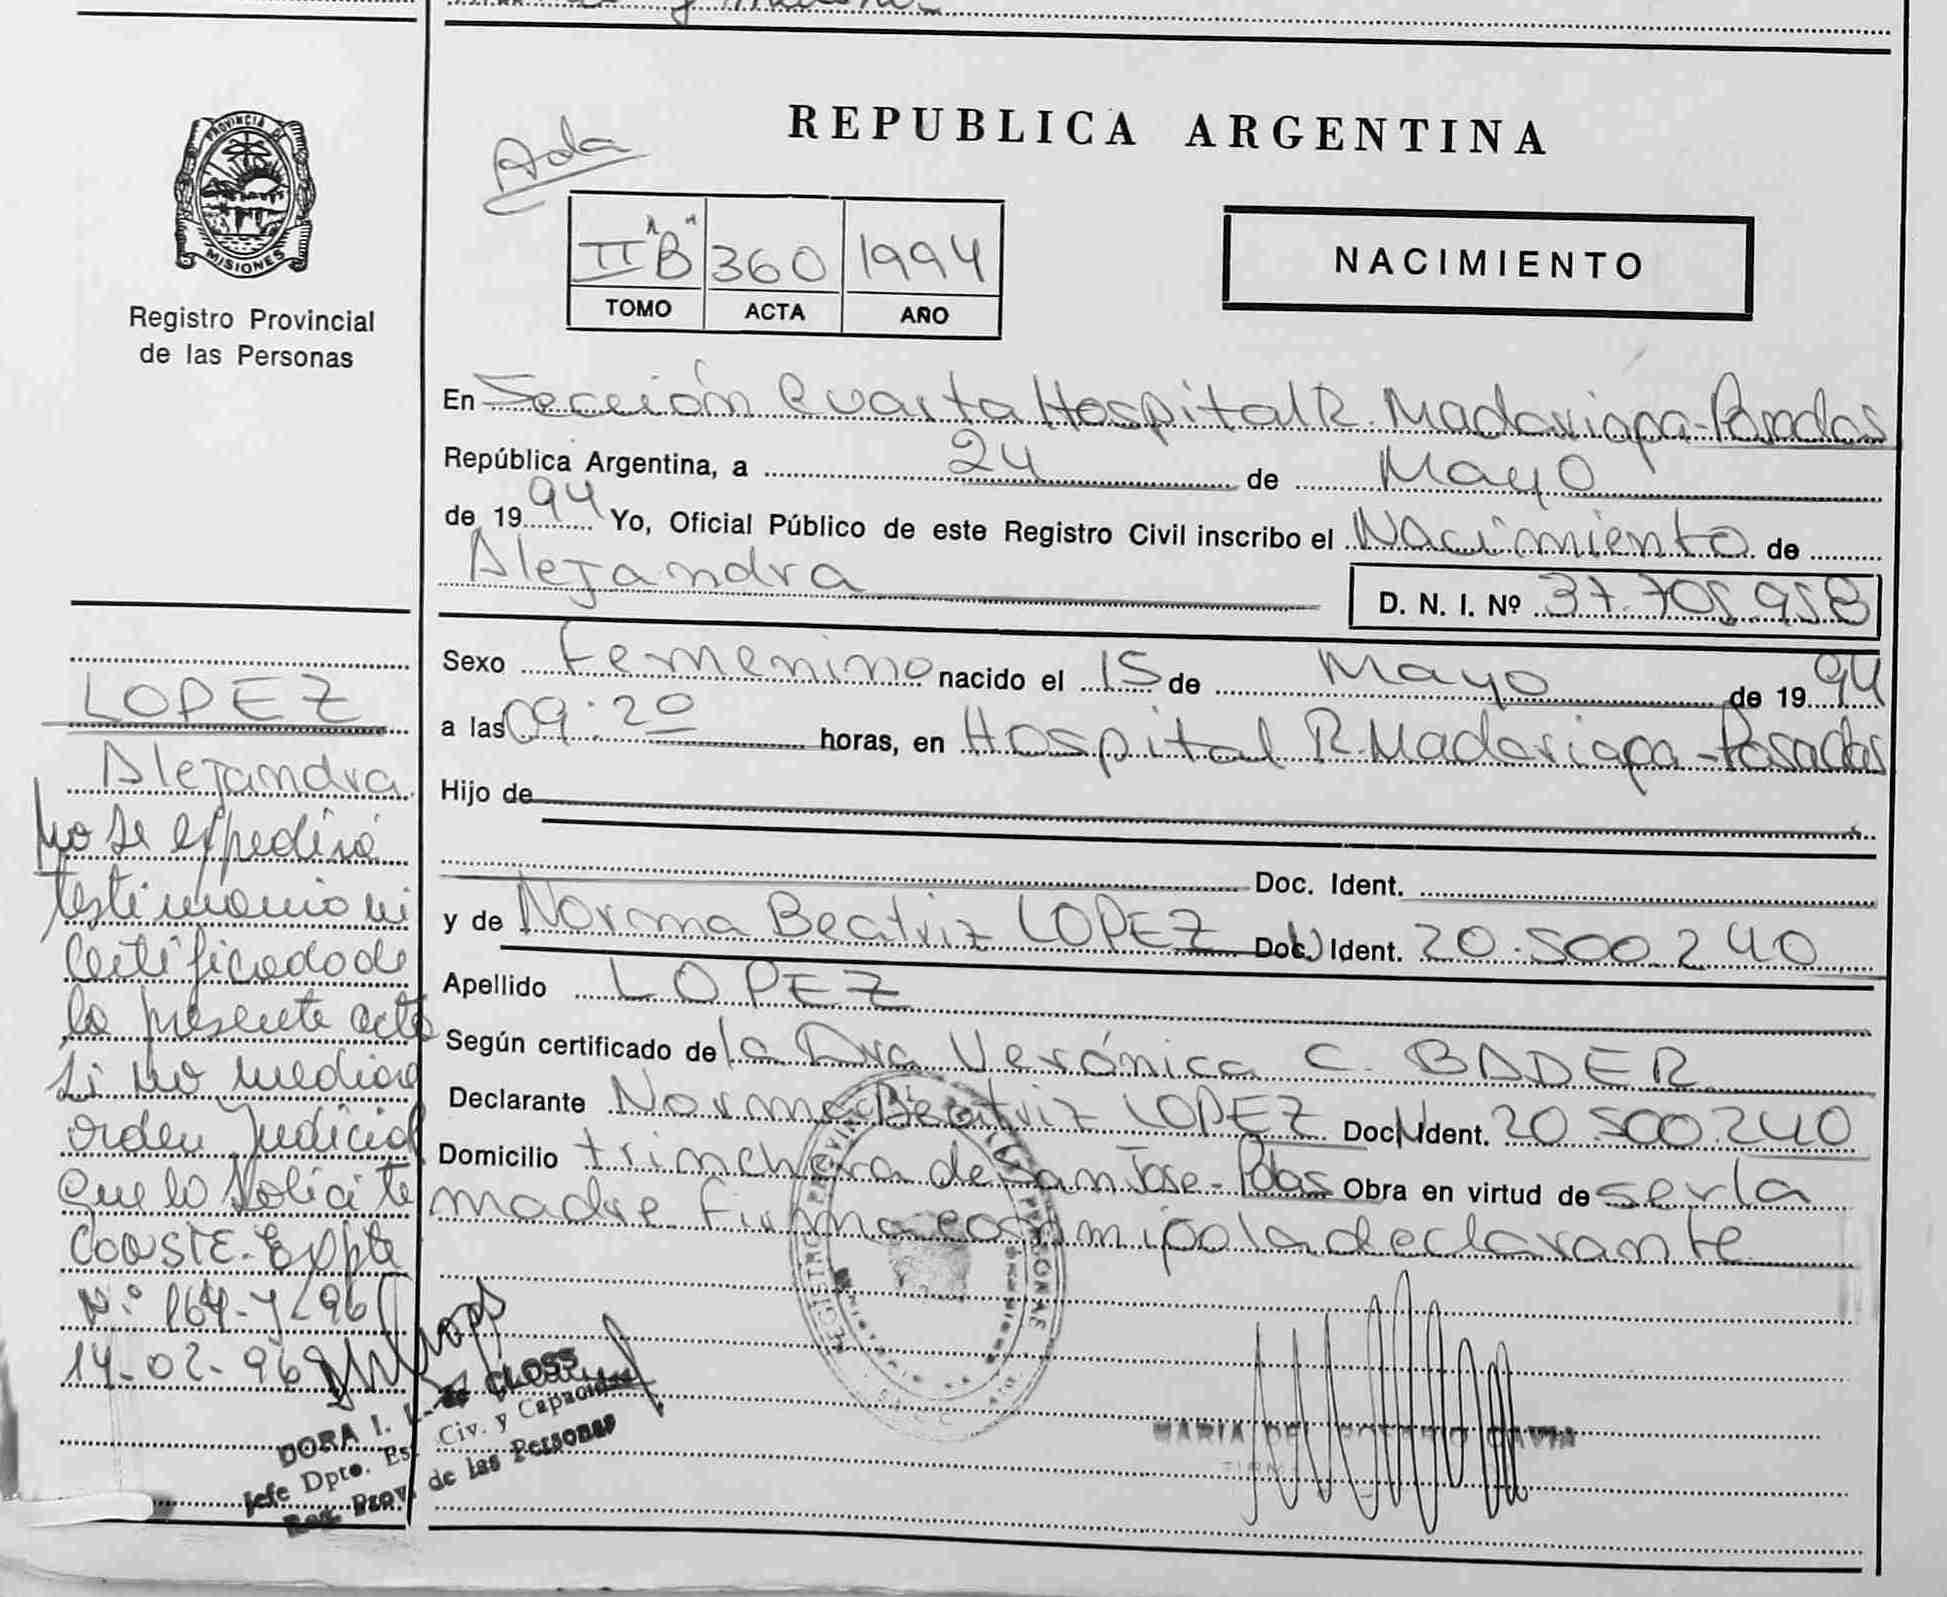 PROVINCIA DE
MISIONES
Registro Provincial
de las Personas
REPUBLICA ARGENTINA
Ada
II "B" 360 1994
TOMO ACTA AÑO
NACIMIENTO
En Sección Cuarta Hospital R. Madariaga - Posadas
República Argentina, a 24 de Mayo
de 1994 Yo, Oficial Público de este Registro Civil inscribo el Nacimiento de
Alejandra D. N. I. Nº 37.705.958
Sexo Femenino nacido el 15 de Mayo de 1994
a las 09:20 horas, en Hospital R. Madariaga - Posadas
Hijo de
Doc. Ident.
y de Norma Beatriz LOPEZ Doc. Ident. 20.500.240
Apellido LOPEZ
Según certificado de la Dra Verónica C. BADER
Declarante Norma Beatriz LOPEZ Doc. Ident. 20.500.240
Domicilio trinchera de San Jose - Pdas Obra en virtud de ser la
madre firma conmigo la declarante
LOPEZ
Alejandra
No se expedirá
testimonio ni
certificado de
la presente acta
si no mediare
orden Judicial
que lo solicite
CONSTE - Expte
N:º 164-Y-96
14-02-96
DORA I. L. de CLOSS
Jefe Dpto. Est. Civ. y Capacidad
Reg. Prov. de las Personas
REGISTRO PROVINCIAL DE LAS PERSONAS
MARIA DEL ROSARIO